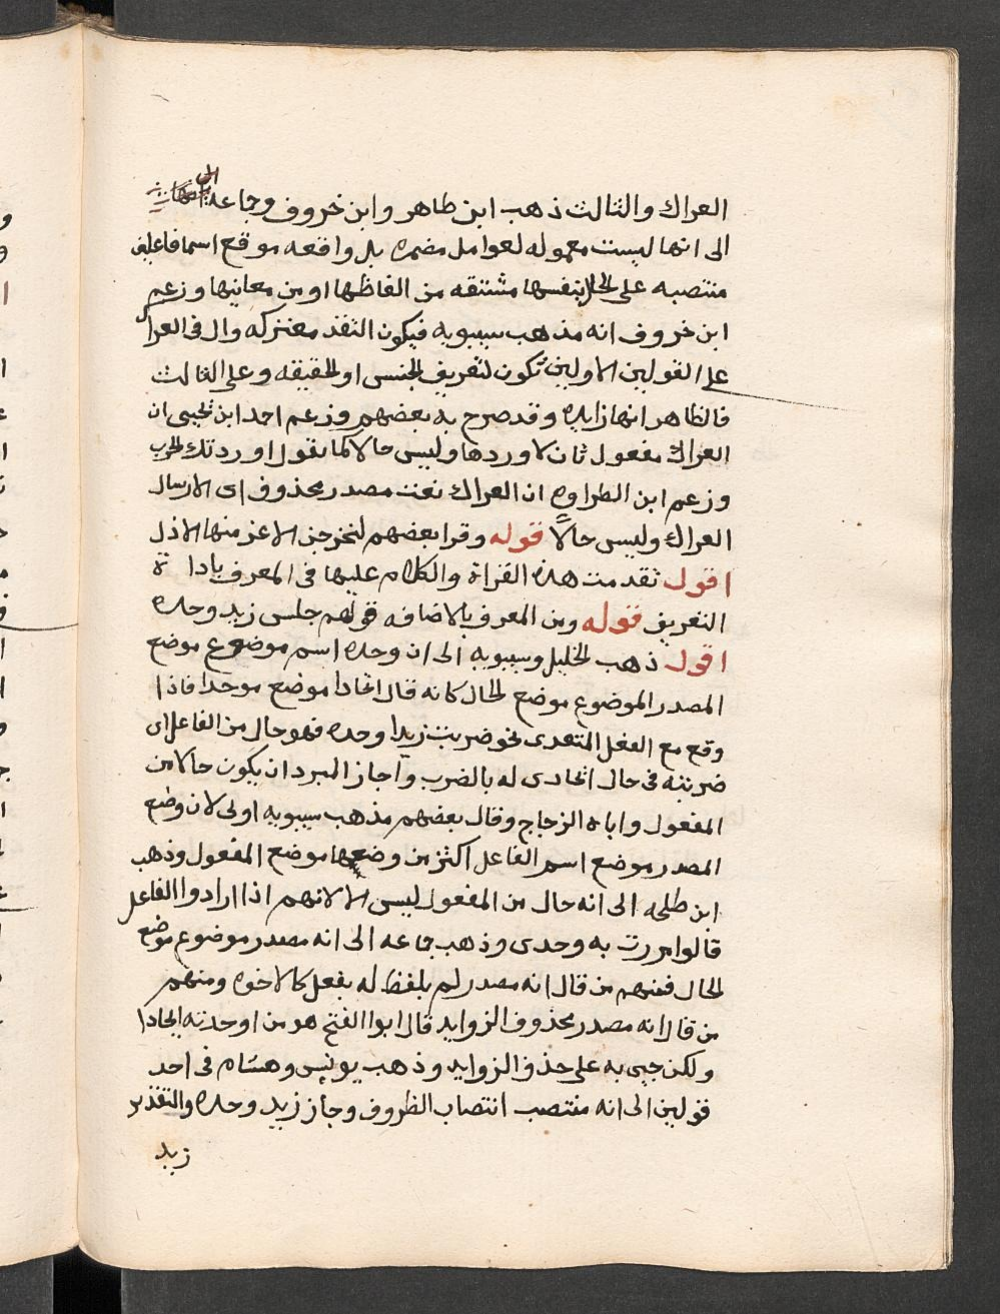 العراك والثالث ذهب ابن طاهر وابن خروف وجماعه الى
الى انها ليست معموله لعوامل مضمره بل واقعه موقع اسما فاعلين
منتصبه على الحال بنفسها مشتقه من الفاظها او من معانيها وزعم
ابن خروف انه مذهب سيبويه فيكون التقد معتركه وال في العراك
على القولين الاولين تكون لتعريف الجنس او الحقيقه وعلى الثالث
فالظاهر انها زايده وقد صرح به بعضهم وزعم احمد ابن يحيى ان
العراك مفعول ثان لاوردها وليس حالا كما يقول اوردتك الحرب
وزعم ابن الطراوه ان العراك نعت مصدر محذوف اى الارسال
العراك وليس حالًا قوله وقرا بعضهم لنخرجن الاعز منها الاذل
اقول تقدمت هذه القراة والكلام عليها فى المعرف باداة
التعريف قوله ومن المعرف بالاضافه قولهم جلس زيد وحده
اقول ذهب الخليل وسيبويه الى ان وحده اسم موضوع موضع
المصدر الموضوع موضع الحال كانه قال اتحادا موضع موحدا فاذا
وقع مع الفعل المتعدى نحو ضربت زيدا وحده فهو حال من الفاعل اى
ضربته فى حال اتحادى له بالضرب واجاز المبرد ان يكون حالا من
المفعول واباه الزجاج وقال بعضهم مذهب سيبويه اولى لان وضع
المصدر موضع اسم الفاعل اكثر من وضعها موضع المفعول وذهب
ابن طلحه الى انه حال من المفعول ليس الا لانهم اذا ارادوا الفاعل
قالوا مررت به وحدى وذهب جماعه الى انه مصدر موضوع موضع
الحال فمنهم من قال انه مصدر لم يلفظ له بفعل كالاخوه ومنهم
من قال انه مصدر محذوف الزوايد قال ابوا الفتح هو من اوحدته ايحادا
ولكن جيى به على حذف الزوايد وذهب يونس وهشام فى احد
قولين الى انه منتصب انتصاب الظروف وجاز زيد وحده والتقدير
زيد